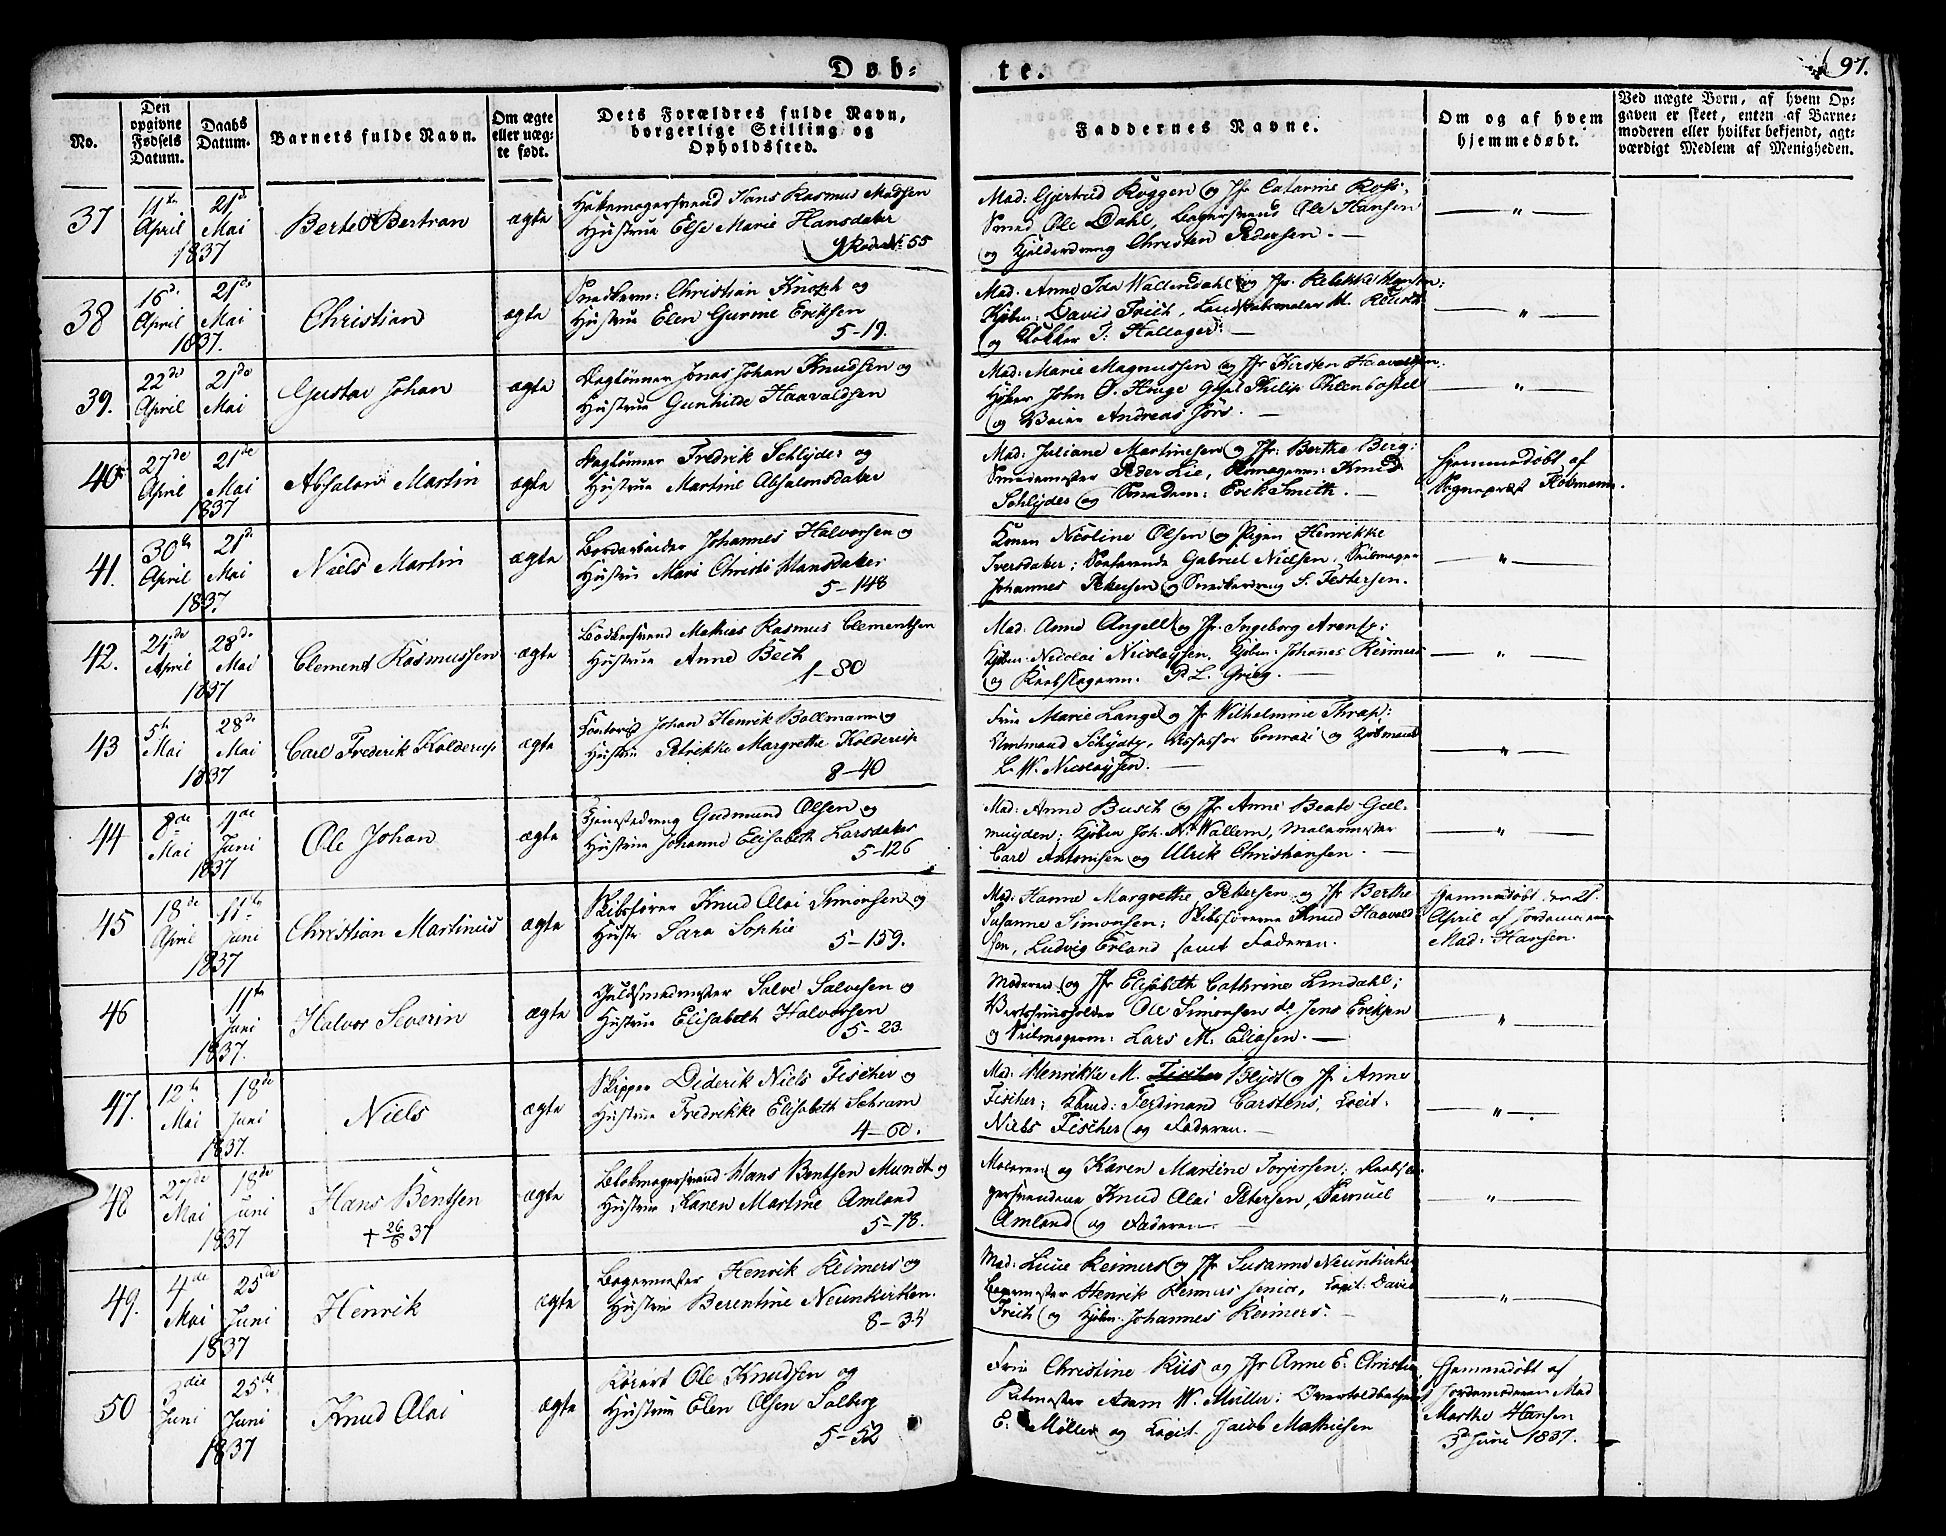 Døb-
te.
97.
No.
Den
opgivne
Fødsels
Datum.
Daabs
Datum.
Barnets fulde Navn.
Om ægte
eller uæg-
te født.
Dets Forældres fulde Navn,
borgerlige Stilling og
Opholdssted.
Faddernes Navne.
Om og af hvem
hjemmedøbt.
Ved uægte Børn, af hvem Op-
gaven er skeet, enten af Barne-
moderen eller hvilket bekjendt, agt-
værdigt Medlem af Menigheden.
37
11te April
21de Mai
1837
Bertel Bertran
ægte
Hattemagersvend Hans Rasmus Madsen
Hustrue Else Marie Hansdater
Rode No 55
Mad: Gjertrud Roggen og Jfr Catarine Ross,
Smed Ole Dahl, Bagersvend Ole Hansen
og Christen Pedersen. —
— " —
38
16de April
21de Mai
1837.
Christian
ægte
Snedkerm: Christian Knoph og
Hustrue Elen Gurine Eriksen
5-19.
Mad. Anne Ida Wallendahl og Jfr.
Kjøbm: David Frich,
og Klokker J: Hallager. —
— " —
39.
22de April
21de Mai
Gustav Johan
ægte
Daglønner Jonas Johan Knudsen og
Hustrue Gunhilde Haavaldsen
Mad: Marie Magnussen og Jfr Kirsten
John O. Hinge Philip Ohlenbostel
og Andreas Jörs. —
— " —
40
27de April
21de Mai
1837
Absalon Martin
ægte
Daglønner Fredrik Schlyder og
Hustrue Martine Absalonsdater
Mad: Juliane Martinesen og Jfr: Berthe Berg;
Smedemester Peder Lie, Knud
Schlyder og Smedem: Erik Smith. —
Hjemmedøbt af
41.
30te April
21de Mai
1837.
Niels Martin
ægte
Bordarbeider Johannes Halvorsen og
Hustrue Mari Christi Hansdater
5-148
Konen Nicoline Olsen og Pigen Henrikke
Iversdater; Søefarende Gabriel Nielsen, Seilmager
Johannes Petersen og Snedkerdreng S. Festersen.
— " —
42.
24de April
28de Mai
1837
Clement Rasmussen
ægte
Bødkersvend Mathias Rasmus Clementsen
Hustrue Anne Bech
1-80
Mad: Anne Angell og Jfr. Ingeborg Arentz;
Kjøbm. Nicolai Nicolaysen, Kjøbm. Johannes Reimers
og Reebslagerm. P. L. Grieg. —
— " —
43
5te Mai
28de Mai
1837
Carl Frederik Kolderup
ægte
Contorist Johan Henrik Bollmann og
Hustrue Petrikke Margrethe Kolderup
8-40
Frue Marie Lange og Jfr Wilhelmine Thrap;
Amtmand Schydtz, Assessor Conradi og Kjøbmand
L. W. Nicolaysen. —
— " —
44
8de Mai
4de Juni
1837
Ole Johan
ægte
Tjenestedreng Gudmund Olsen og
Hustrue Johanne Elisabeth Larsdater
5-126
Mad: Anne Busch og Jfr Anne Beate Gæl-
muyden; Kjøbm Joh. N. Wallem, Malermester
Carl Antonisen og Ulrik Christiansen. —
— " —
45
18de April
11te Juni
1837
Christian Martinus
ægte
Skibsfører Knud Alai Simonsen og
Hustr Sara Sophie
5-159.
Mad: Hanne Margrethe Petersen og Jfr Berthe
Susanne Simonsen; Skibsførerne Knud Haavald-
sen, Ludvig Erland samt Faderen.
Hjemmedøbt den 21.
April af Jordemoderen
Mad: Hansen.
46
11te Juni
1837.
Halvor Severin
ægte
Guldsmedmester Salve Salvesen og
Hustrue Elisabeth Halvorsen
5-23.
Moderen og Jfr Elisabeth Cathrine Lindahl;
Vertshuusholder Ole Simonsen do Jens Eriksen
og Seilmagerm: Lars M. Eliasen. —
— " —
47.
12te Mai
18de Juni
1837.
Niels
ægte
Skipper Diderik Niels Fischer og
Hustrue Fredrikke Elisabeth Schram
4-60.
Mad: Henrikke M. Fischer Blydt og Jfr Anne
Fischer; Ferdinand Carstens,
Niels Fischer og Faderen. —
— " —
48
27de Mai
18de Juni
1837
Hans Bentsen
+ 26/6 37
ægte
Blokmagersvend Hans Bentsen Mundt og
Hustrue Karen Martine Amland
5-78.
Moderen og Karen Martine Torjersen; Reebsla-
gersvendene Knud Alai Petersen, Samuel
Amland og Faderen —
— " —
49.
4de Mai
25de Juni
1837
Henrik
ægte
Bagermester Henrik Reimers og
Hustrue Berentine Neunkirken.
8-34
Mad: Lucie Reimers og Jfr Susanne Neunkirken
Bagermester Henrik Reimers senior, David
Frich og Kjøbm. Johannes Reimers. —
— " —
50
3die Juni
25de Juni
1837
Knud Alai
ægte
Ole Knudsen og
Hustrue Elen Olsen Solberg
5-52
Frue Christine Riis og Jfr Anne E. Christie,
Adam W. Müller;
E. Møller og Jacob Mathiesen
Hjemmedøbt af
Jordemoderen Mad
Marthe Hansen
3d Juni 1837.